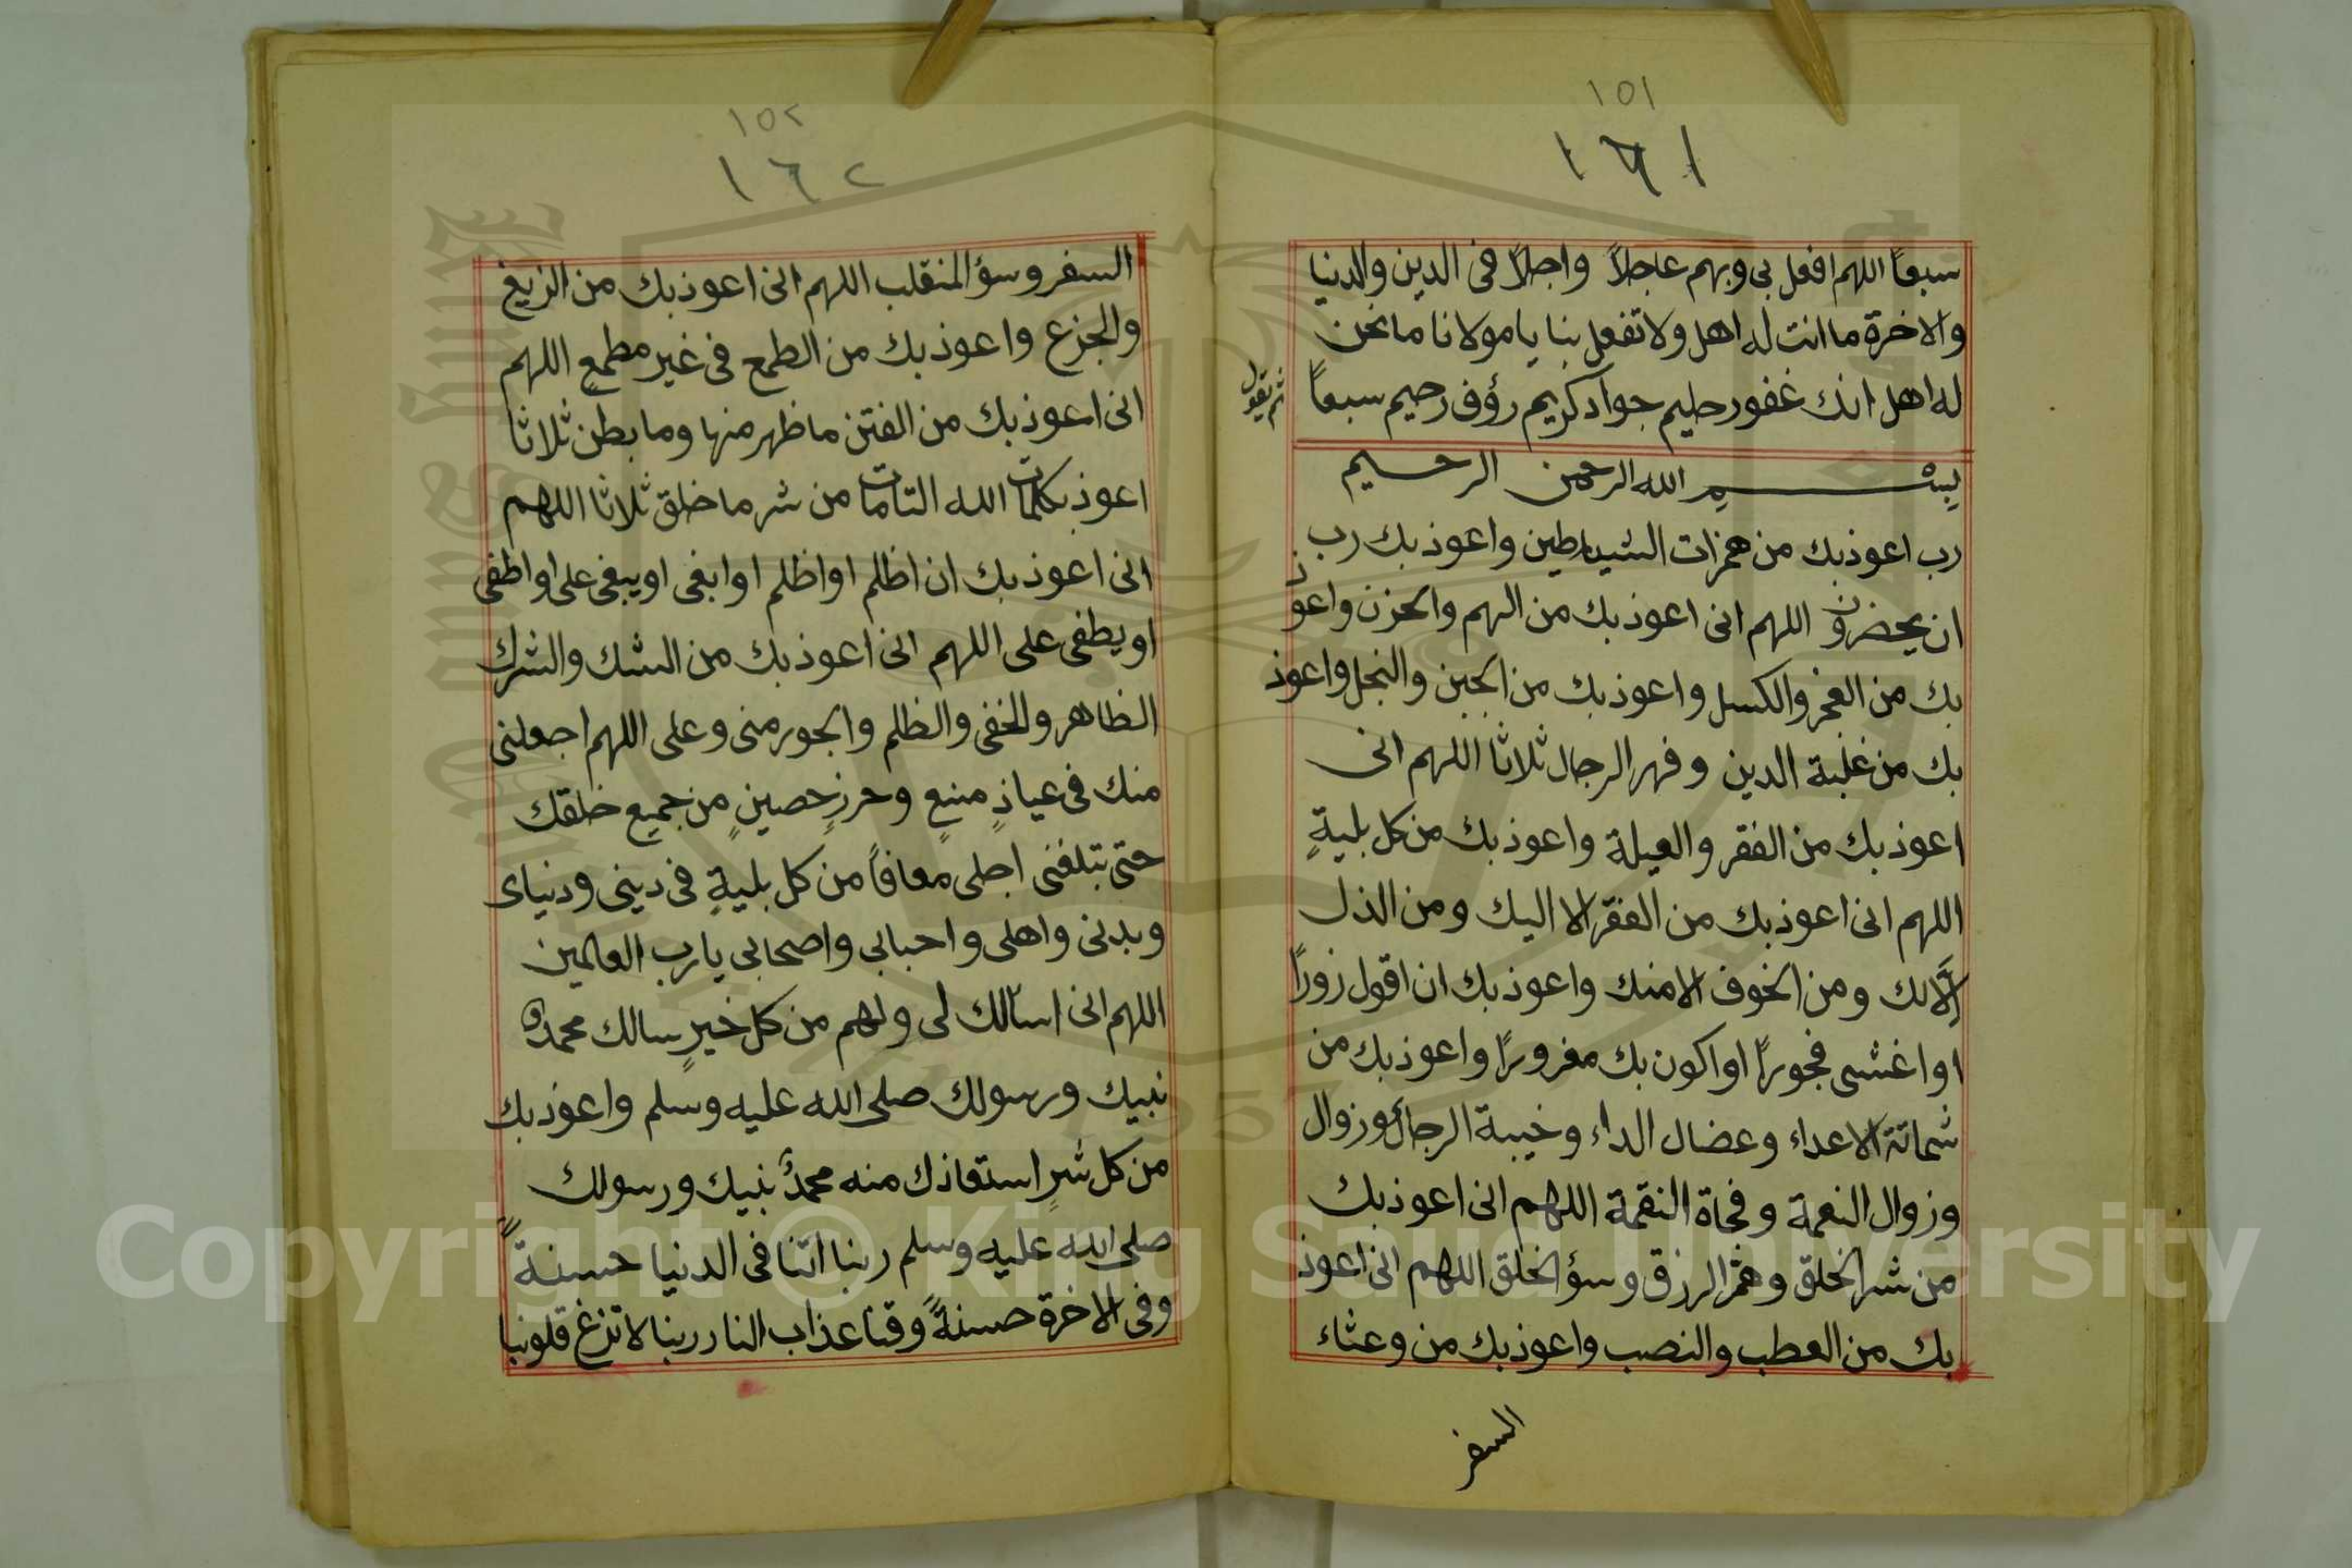 ١٥١
١٦١
سبعاً اللهم افعل بى وبهم عاجلاً واجلاً فى الدين والدنيا
والاخرة ما انت له اهل ولا تفعل بنا يا مولانا ما نحن
له اهل انك غفور حليم جواد كريم رؤف رحيم سبعاً
ثم يقول
بسم الله الرحمن الرحيم
رب اعوذبك من همزات الشياطين واعوذ بك رب
ان يحضرون اللهم انى اعوذ بك من الهم والحزن واعوذ
بك من العجز والكسل واعوذ بك من الجبن والبخل واعوذ
بك من غلبة الدين وقهر الرجال ثلاثا اللهم انى
اعوذ بك من الفقر والعيلة واعوذ بك من كل بليةٍ
اللهم انى اعوذ بك من الفقر الا اليك ومن الذل
إلَّا لك ومن الخوف الا منك واعوذ بك ان اقول زوراً
او اغشى فجوراً او اكون بك مغروراً واعوذ بك من
شماتة الاعداء وعضال الداء وخيبة الرجاء وزوال
وزوال النعمة وفجاة النقمة اللهم انى اعوذ بك
من شر الخلق وهم الرزق وسؤ الخلق اللهم انى اعوذ
بك من العطب والنصب واعوذ بك من وعثاء
السفر
١٥٢
١٦٢
السفر وسؤ المنقلب اللهم انى اعوذ بك من الزيغ
والجزع واعوذ بك من الطمع فى غير مطمع اللهم
انى اعوذ بك من الفتن ما ظهر منها وما بطن ثلاثا
اعوذ بكلمات الله التامات من شر ما خلق ثلاثا اللهم
انى اعوذ بك ان اظلم او اظلم او ابغى او يبغى على او اطغى
او يطغى على اللهم انى اعوذ بك من الشك والشرك
الظاهر والخفى والظلم والجور منى وعلى اللهم اجعلنى
منك فى عياذٍ منيعٍ وحرزٍ حصينٍ من جميع خلقك
حتى تبلغنى اجلى معافاً من كل بليةٍ فى دينى ودنياى
وبدنى واهلى واحبابى واصحابى يا رب العالمين
اللهم انى اسالك لى ولهم من كل خيرٍ سالك محمدٌ
نبيك ورسولك صلى الله عليه وسلم واعوذ بك
من كل شرٍ استعاذك منه محمدٌ نبيك ورسولك
صلى الله عليه وسلم ربنا اتنا فى الدنيا حسنةً
وفى الاخرة حسنةً وقنا عذاب النار ربنا لا تزغ قلوبنا
Copyright © King Saud University